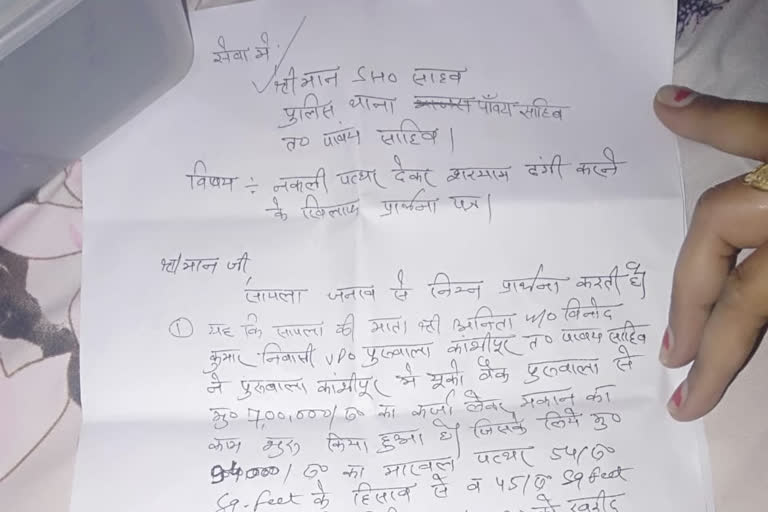 सेवा मे:
श्री मान SHO साहब
पुलिस थाना पाँवटा साहिब
त० पांवटा साहिब।
विषय ÷ नकली पत्थर देकर सरेआम ठगी करने
के खिलाफ प्रार्थना पत्र।
श्री मान जी
सायला जनाब से निम्न प्रार्थना करती है।
① यह कि सायला की माता श्री अनिता W/O विनोद
कुमार निवासी VPO पुरुवाला कांशीपुर त० पांवटा साहिब
ने पुरुवाला कांशीपुर मे यूको बैंक पुरुवाला से
मु० 7,00,000/रू० का कर्जा लेकर मकान का
काम शुरू किया हुआ है। जिसके लिये मु०
94000/रू० का मारबल पत्थर 54/रू०
Sq-feet के हिसाब से व 45/रू Sq feet
खरीद